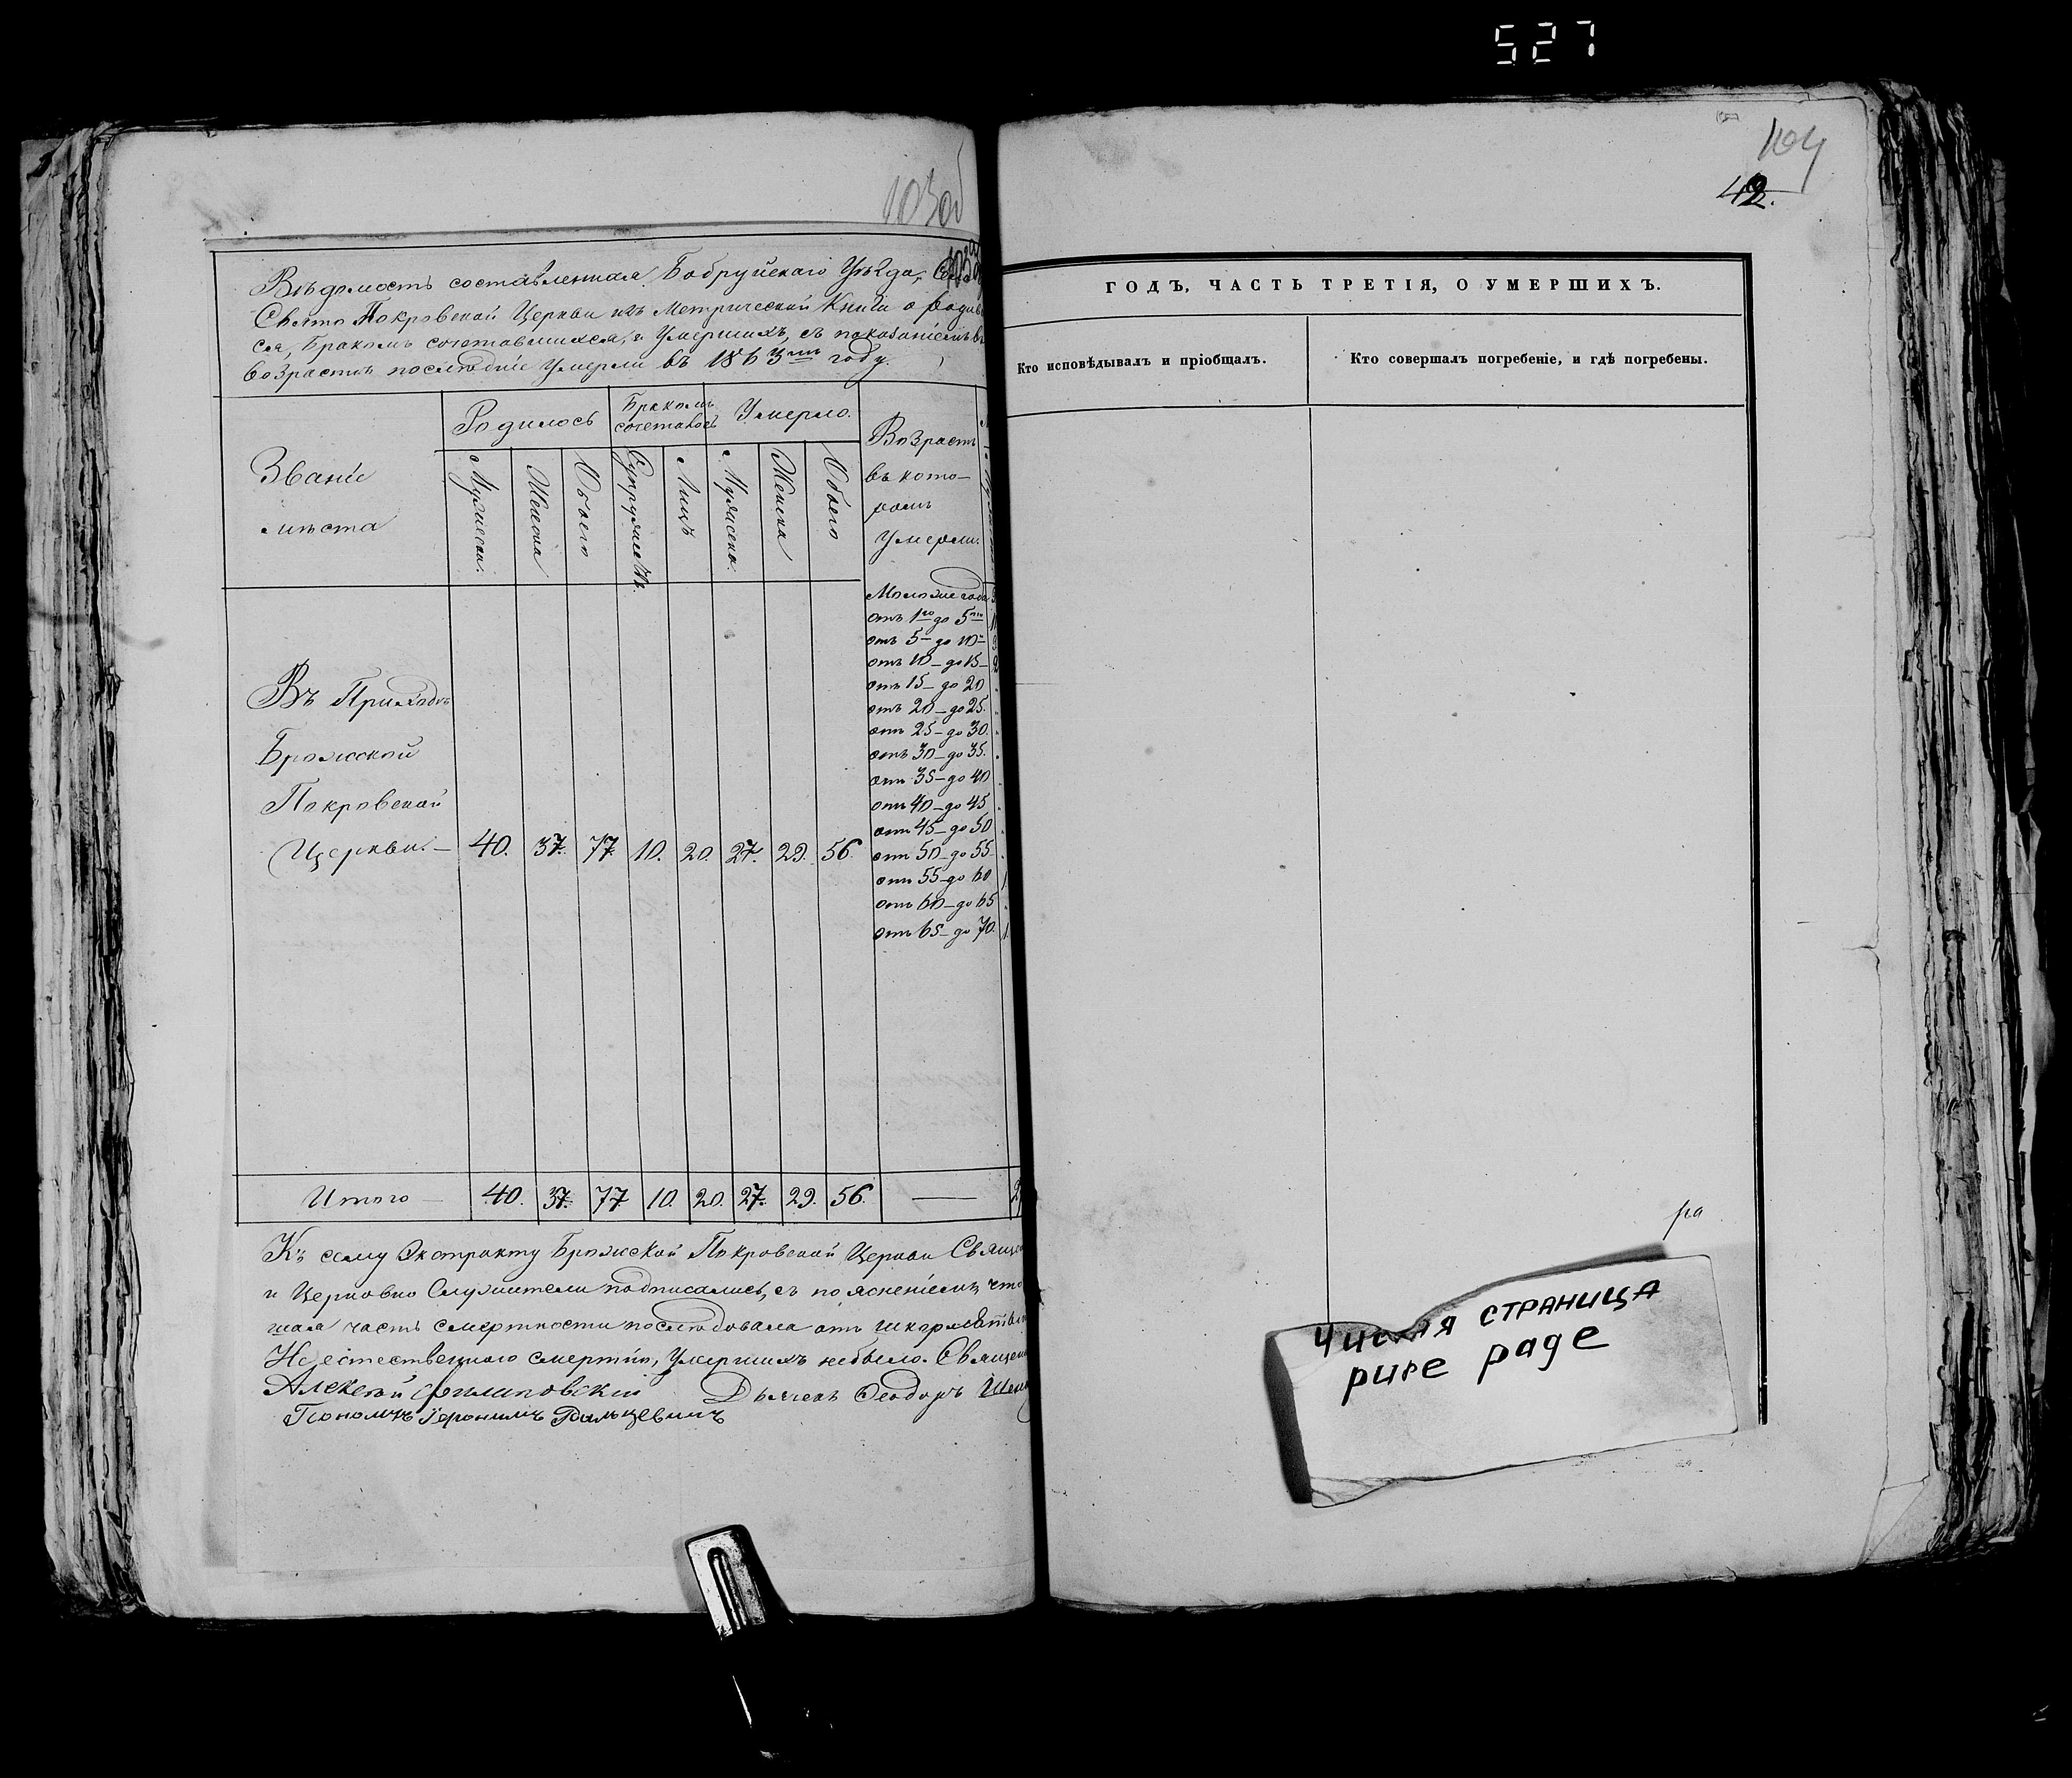 527
103об
Вѣдомость составленная Бобруйскаго Уѣзда,
Свято Покровской Церкви изъ Метрической Книги о родив
ся, Бракомъ сочетавшихся, и Умершихъ, съ показаніемъ въ
возрастѣ послѣдніе Умерли въ 1863мъ году.
Званіе
мѣста
Родилось
Бракомъ
сочеталось
Умерло.
Возрастъ
въ кото-
ромъ
Умерли.
Мужеска.
Женска
Обоего
Супружествъ.
Лицъ
Мужеска.
Женска
Обоего
Моложе года
отъ 1го до 5ти
отъ 5 – до 10
отъ 10 – до 15 –
отъ 15 – до 20
отъ 20 – до 25.
отъ 25 – до 30.
отъ 30 – до 35.
отъ 35 – до 40
отъ 40 – до 45
отъ 45 – до 50
отъ 50 – до 55
отъ 55 – до 60
отъ 60 – до 65
отъ 65 – до 70.
Въ Приходѣ
Брожской
Покровской
Церкви. – 40. 37. 77. 10. 20. 27. 29. 56.
Итого – 40. 37. 77 10. 20. 27. 29. 56. —
Къ сему Экстракту Брожской Покровской Церкви Священ
и Церковно Служители подписались, съ пояснениемъ, что
шая часть смертности последовала отъ
Не естественного смертію, Умершихъ небыло. Священ
Алексѣй Филиповскій Дьячекъ Ѳеодоръ
Пономарь Іеронимъ
104
42.
ГОДЪ, ЧАСТЬ ТРЕТІЯ, О УМЕРШИХЪ.
Кто исповѣдывалъ и пріобщалъ.
Кто совершалъ погребеніе, и гдѣ погребены.
ра
Чистая страница
pure page